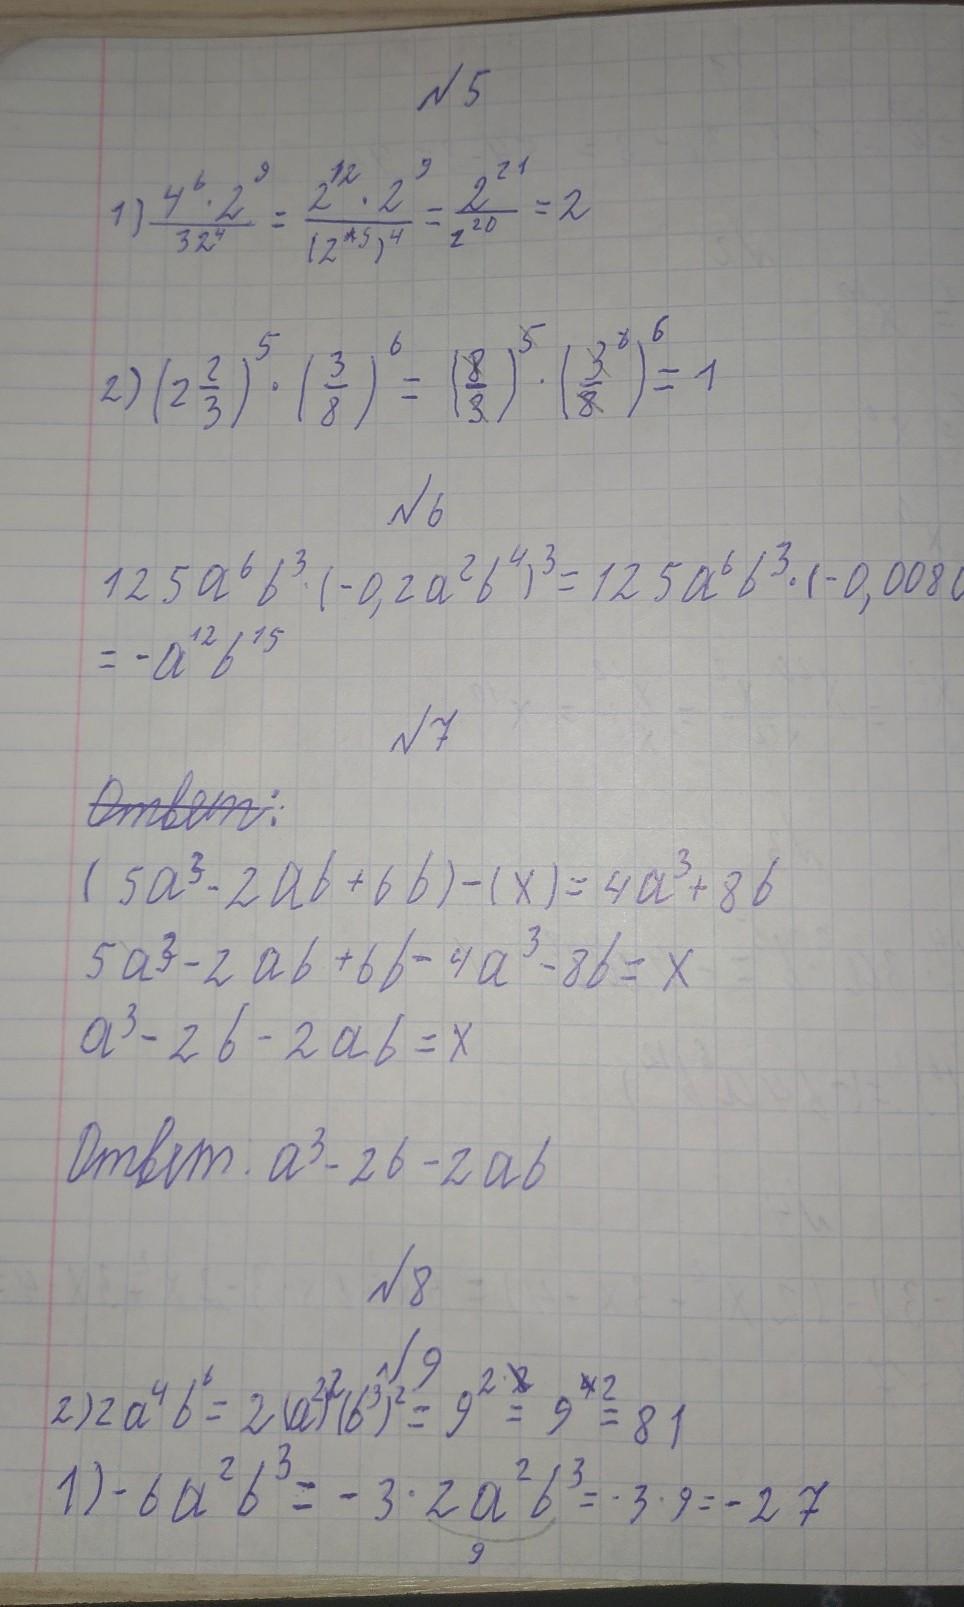 №5
1) 4⁶·2⁹/32⁴ = 2¹²·2⁹/(2⁵)⁴ = 2²¹/2²⁰ = 2
2) (2 2/3)⁵·(3/8)⁶ = (8/3)⁵·(3/8)⁶ = 1
№6
125a⁶b³·(-0,2a²b⁴)³=125a⁶b³·(-0,008
= -a¹²b¹⁵
№7
Ответ:
(5a³-2ab+6b)-(x)=4a³+8b
5a³-2ab+6b-4a³-8b=x
a³-2b-2ab=x
Ответ: a³-2b-2ab
№8
№9
2) 2a⁴b⁶ = 2(a²)²(b³)² = 9² = 9² = 81
1) -6a²b³ = -3·2a²b³ = -3·9 = -27
9